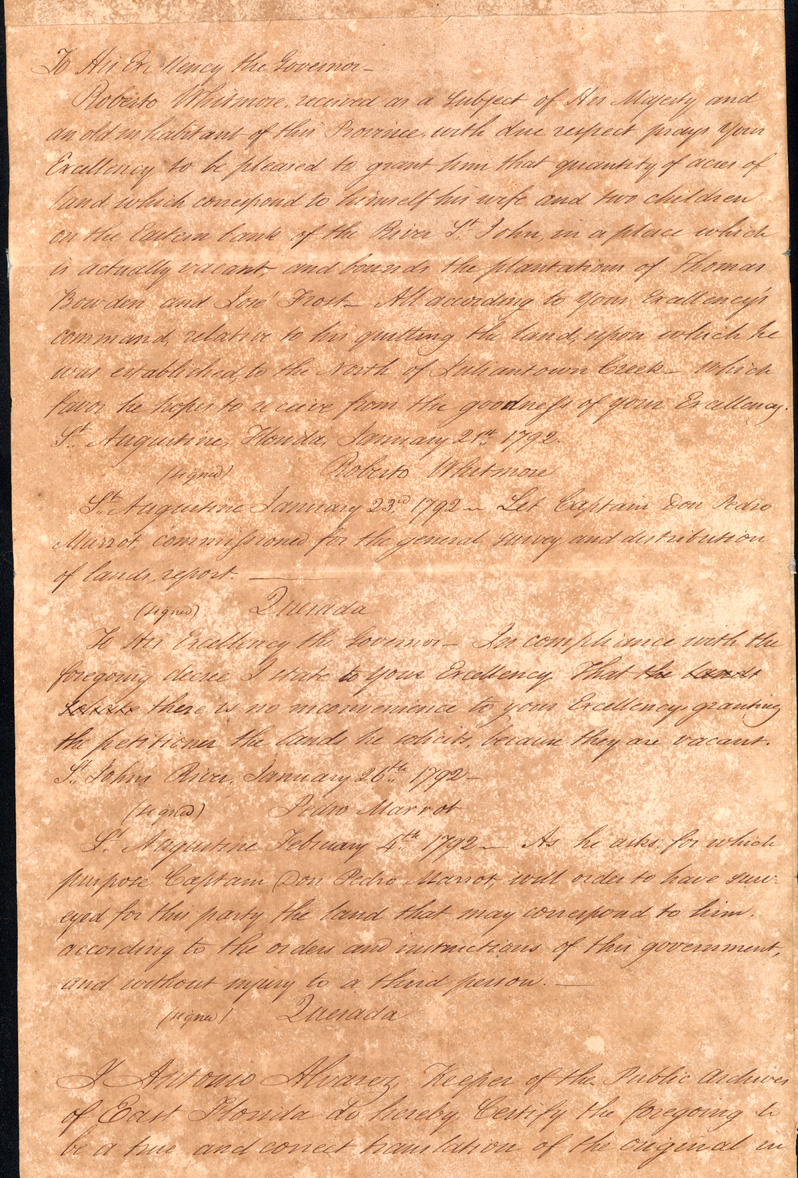 To His Excellency the Governor—
Roberto Whitmore, received as a Subject of His Majesty and
an old inhabitant of this Province, with due respect prays Your
Excellency to be pleased to grant him that quantity of acres of
land which correspond to himself his wife and two children
on the Eastern bank of the River St. John, in a place which
is actually vacant, and bounds the plantations of Thomas
Bowden and Frost— All according to Your Excellency's
command, relative to his quitting the land, upon which he
was established, to the North of Juliantown Creek— which
favor he hopes to receive from the goodness of your Excellency.
St. Augustine, Florida, January 21st 1792.
(signed) Roberto Whitmore
St. Augustine January 23rd 1792— Let Captain Don Pedro
Marrot, commissioned for the general survey and distribution
of lands, report. —
(signed) Quesada
To His Excellency the Governor— In compliance with the
foregoing decree I state to your Excellency, That the lands
there is no inconvenience to your Excellency granting
the petitioner the lands he solicits, because they are vacant.
St. Johns River, January 26th 1792—
(signed) Pedro Marrot
St. Augustine February 4th 1792— As he asks, for which
purpose Captain Don Pedro Marrot, will order to have surv-
eyd for this party the land that may correspond to him,
according to the orders and instructions of this government,
and without injury to a third person. —
(signed) Quesada
I Antonio Alvarez, Keeper of the Public Archives
of East Florida do hereby Certify the foregoing to
be a true and correct translation of the original in